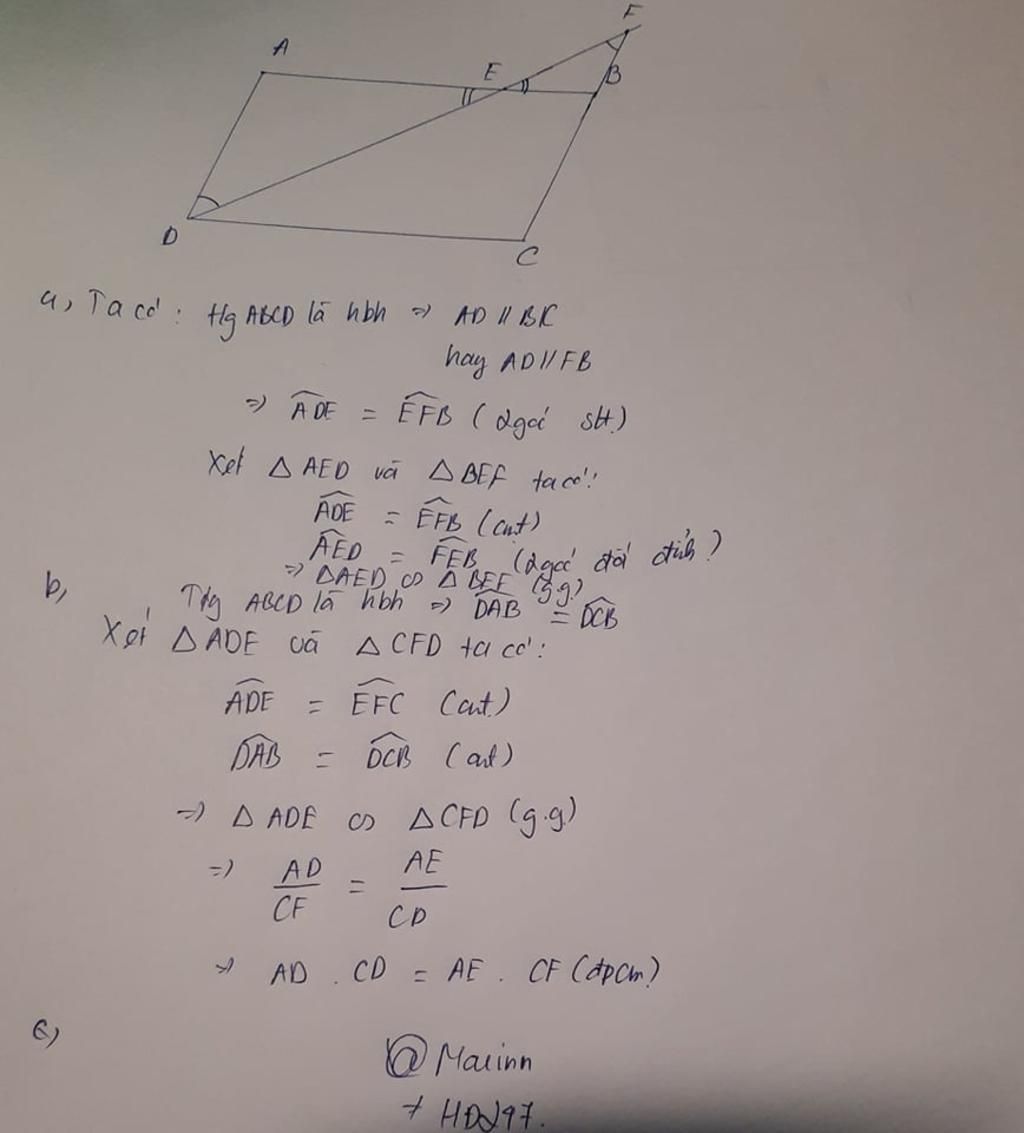 F
A
E
B
D
C
a, Ta có : Hg ABCD là hbh => AD // BC
hay AD // FB
=> ADE = EFB ( 2 góc slt )
Xét △ AED và △ BEF ta có :
ADE = EFB (cmt)
AED = FEB (2 góc đối đỉnh )
=> △AED ∽ △ BEF (g.g)
b, Tứg ABCD là hbh => DAB = DCB
Xét △ ADE và △ CFD ta có :
ADE = EFC (cmt)
DAB = DCB (cmt)
=> △ ADE ∽ △ CFD (g.g)
=> AD/CF = AE/CD
=> AD . CD = AE . CF (đpcm)
c,